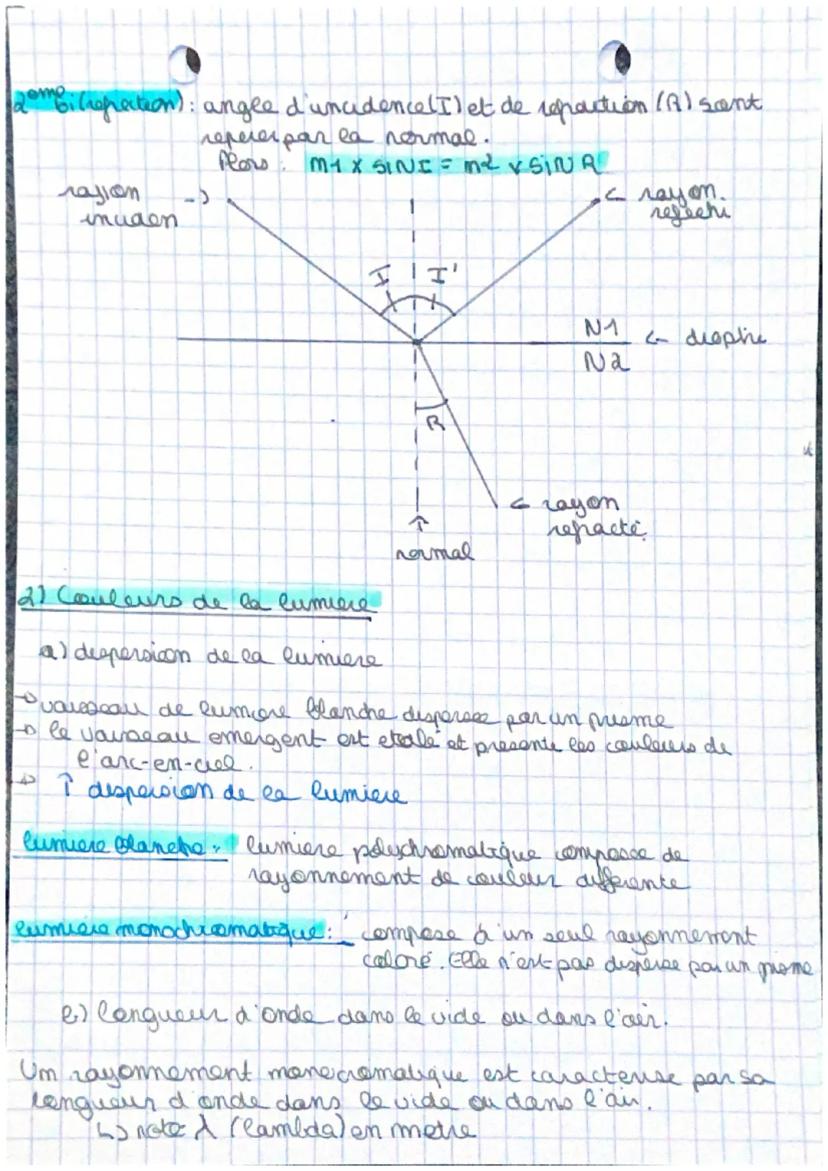 2ème loi (refraction) : angle d'incidence (I) et de refraction (R) sont
reperer par la normal.
Alors : n1 x sin I = n2 x sin R
rayon
inciden
rayon
reflechi
I I'
N1
N2
dioptre
R
rayon
refracté
normal
2) Couleurs de la lumiere
a) dispersion de la lumiere
→ vaisseau de lumiere blanche dispersée par un prisme
→ le vaisseau emergent est etalé et presente les couleurs de
l'arc-en-ciel.
→ ↑ dispersion de la lumiere
lumiere blanche : lumiere polychromatique composée de
rayonnement de couleur differente
lumiere monochromatique : compose à un seul rayonnement
coloré. Elle n'est pas disperse par un prisme
b) longueur d'onde dans le vide ou dans l'air.
Um rayonnement monocromatique est caracterise par sa
longueur d'onde dans le vide ou dans l'air.
↳ note λ (lambda) en metre